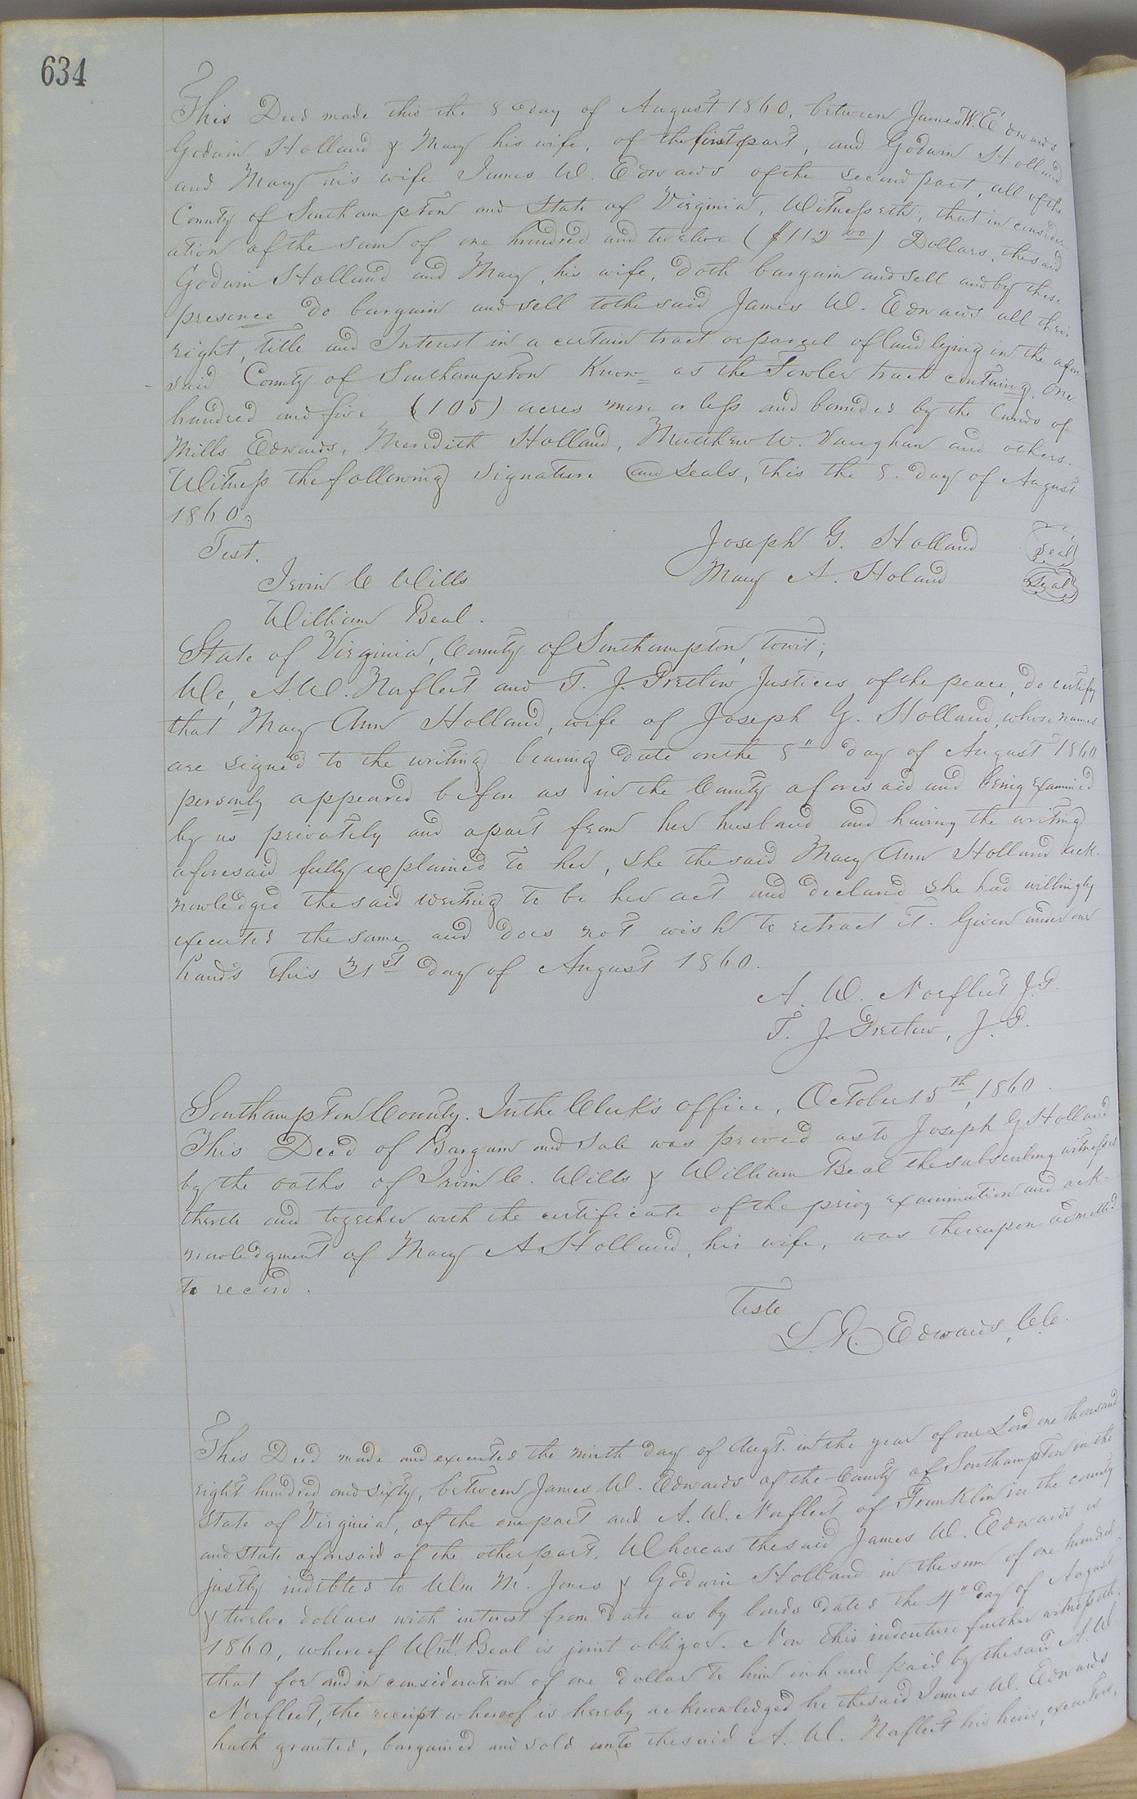 634
This Deed made this the 8 day of August 1860, between James W. Edwards
Godwin Holland & Mary his wife, of the first part, and Godwin Holland
and Mary his wife James W. Edwards of the second part, all of the
County of Southampton and State of Virginia, Witnesseth, that in consider
ation of the sum of one hundred and twelve ($112 00) Dollars, the said
Godwin Holland and Mary, his wife, doth bargain and sell and by these
presence do bargain and sell to the said James W. Edwards all their
right, title and Interest in a certain tract or parcel of land lying in the afore
said County of Southampton Know as the Fowler track contuing One
hundred and five (105) acres more or less and bounded by the lands of
Mills Edwards, Meredith Holland, Matthew W. Vaughan and others.
Witness the following signature and Seals, this the 8. day of August
1860.
Test.
Joseph G. Holland Seal
Irvin C Wills
Mary A. Holand Seal
William Beal.
State of Virginia, County of Southampton, towit;
We, A. W. Norfleet and T. J. Pretlow Justices of the peace, do certify
that Mary Ann Holland, wife of Joseph G. Holland, whose names
are signed to the writing bearing date on the 8" day of August 1860
personly appeared before us in the County aforesaid and being examined
by us privately and apart from her husband and having the writing
aforesaid fully explained to her, she the said Mary Ann Holland ack-
nowledged the said writing to be her act and declared she had willingly
executed the same and does not wish to retract it. Given under our
hands this 31st day of August 1860.
A. W. Norfleet J.P.
T. J. Pretlow, J.P.
Southampton County. In the Clerk's office, October 15th, 1860.
This Deed of Bargain and Sale was proved as to Joseph G Holland
by the oaths of Irvin C. Wills & William Beal the subscribing witnesses
thereto and together with the certificate of the privy examination and ack-
nowledgment of Mary A Holland, his wife, was thereupon admitted
to record.
Teste
L. R. Edwards, C.C.
This Deed made and executed the ninth day of Augt. in the year of our Lord one thousand
eight hundred and sixty, between James W. Edwards of the County of Southampton in the
State of Virginia, of the one part and A. W. Norfleet of Franklin in the county
and State aforesaid of the other part. Whereas the said James W. Edwards is
justly indebted to Wm M. Jones & Godwin Holland in the sum of one hundred
& twelve dollars with interest from date as by bonds dated the 4" day of August
1860, whereof Wm. Beal is joint obligor. Now this indenture further witnesseth
that for and in consideration of one dollar to him in hand paid by the said A. W
Norfleet, the receipt whereof is hereby acknowledged he the said James W. Edwards
hath granted, bargained and sold unto the said A. W. Norfleet his heirs, executors,